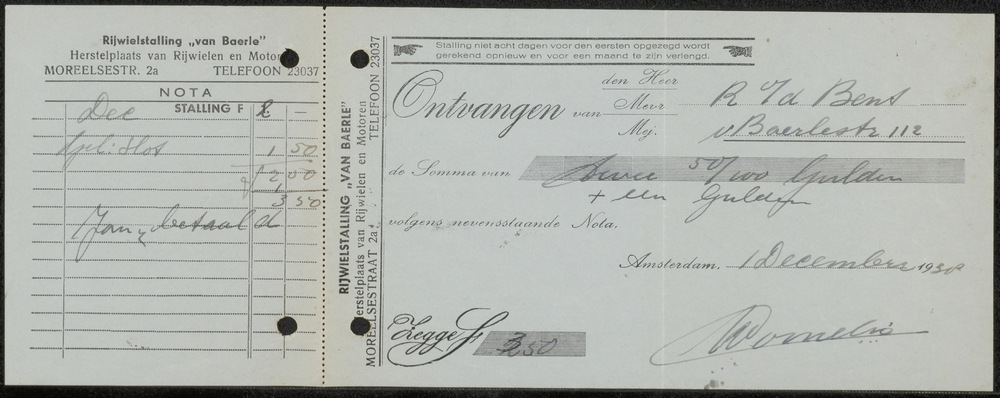 Rijwielstalling „van Baerle”
Herstelplaats van Rijwielen en Motoren
MOREELSESTR. 2a TELEFOON 23037
NOTA
STALLING F
Dec 2 –
slot 1 50
2 50
1
3 50
Jan betaald
RIJWIELSTALLING „VAN BAERLE”
Herstelplaats van Rijwielen en Motoren
MOREELSESTRAAT 2a TELEFOON 23037
Stalling niet acht dagen voor den eersten opgezegd wordt
gerekend opnieuw en voor een maand te zijn verlengd.
Ontvangen van
den Heer
Mevr
Mej.
R v/d Bent
v Baerlestr 112
de Somma van twee 50/100 Gulden
+ een Gulden
volgens nevensstaande Nota.
Amsterdam, 1 December 1938
Zegge f 3 50